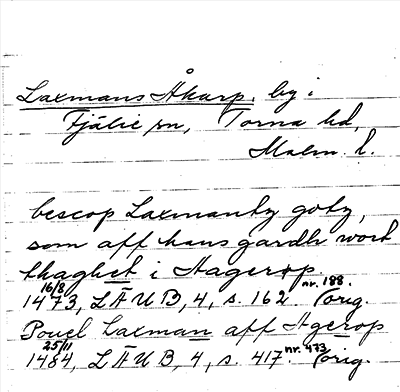 Laxmans Åkarp, by i
Fjälie sn, Torna hd,
Malm. l.
bescop Laxmantz gotz,
som aff hans gardh wort
thaghet i Hagerøp.
16/8 1473, LÄUB, 4, s. 162. nr. 188. Orig.
Pouel Laxman aff Agerop
25/11 1484, LÄUB, 4, s. 417. nr. 473 Orig.